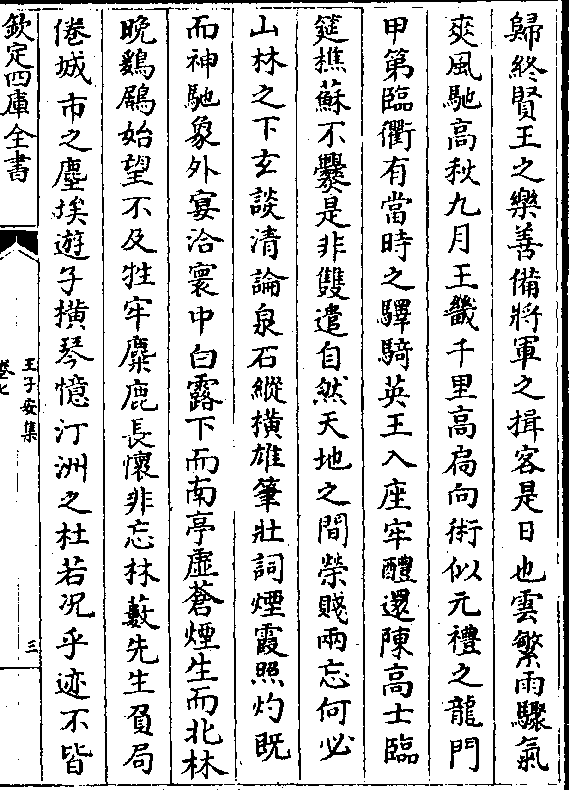 歸終賢王之樂善備將軍之揖客是日也雲繁雨驟氣
爽風馳高秋九月王畿千里高扃向術似元禮之龍門
甲第臨衢有當時之驛騎英王入座牢醴還陳高士臨
筵樵蘇不爨是非雙遣自然天地之間榮賤兩忘何必
山林之下玄談清論泉石縱橫雄筆壯詞煙霞照灼既
而神馳象外宴洽寰中白露下而南亭虛蒼煙生而北林
晚鷄鶋始望不及牲牢麋鹿長懷非忘林藪先生負局
倦城市之塵埃遊子橫琴憶汀洲之杜若况乎迹不皆
欽定四庫全書
王子安集
卷七
三